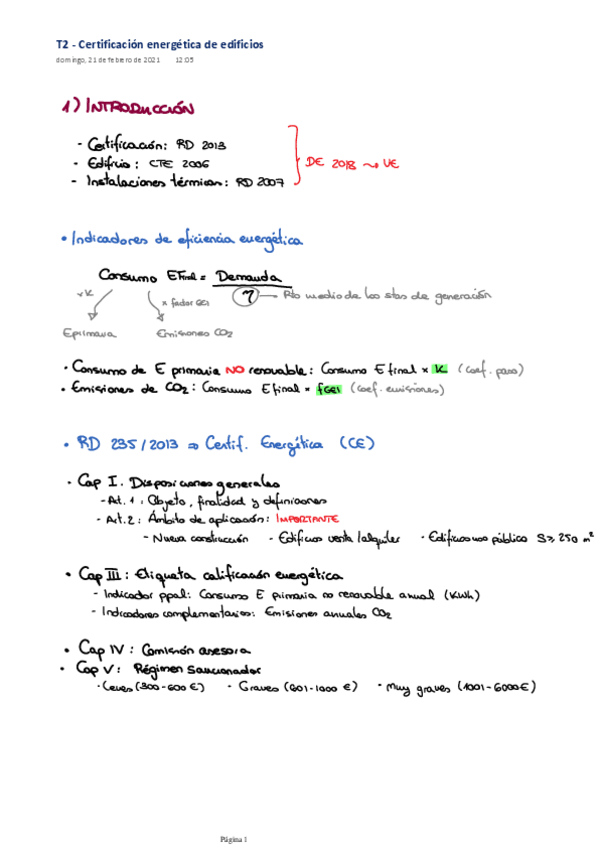 T2 - Certificación energética de edificios
domingo, 21 de febrero de 2021 12:05
1) INTRODUCCIÓN
- Certificación: RD 2013
- Edificio: CTE 2006
- Instalaciones térmicas: RD 2007
DE 2018 → UE
• Indicadores de eficiencia energética
Consumo EFinal = Demanda
η → Rto medio de los stas de generación
xK
x factor GEI
Eprimaria
Emisiones CO2
• Consumo de E primaria NO renovable: Consumo E final x K (coef. paso)
• Emisiones de CO2: Consumo E final x fGEI (coef. emisiones)
• RD 235/2013 ⇒ Certif. Energética (CE)
• Cap I. Disposiciones generales
- Art. 1: Objeto, finalidad y definiciones
- Art. 2: Ámbito de aplicación: IMPORTANTE
- Nueva construcción - Edificios venta/alquiler • Edificios uso público S≥250 m²
• Cap III: Etiqueta calificación energética
- Indicador ppal: Consumo E primaria no renovable anual (KWh)
- Indicadores complementarios: Emisiones anuales CO2
• Cap IV: Comisión asesora
• Cap V: Régimen sancionador
• Leves (300-600 €) • Graves (601-1000 €) • Muy graves (1001-6000€)
Página 1